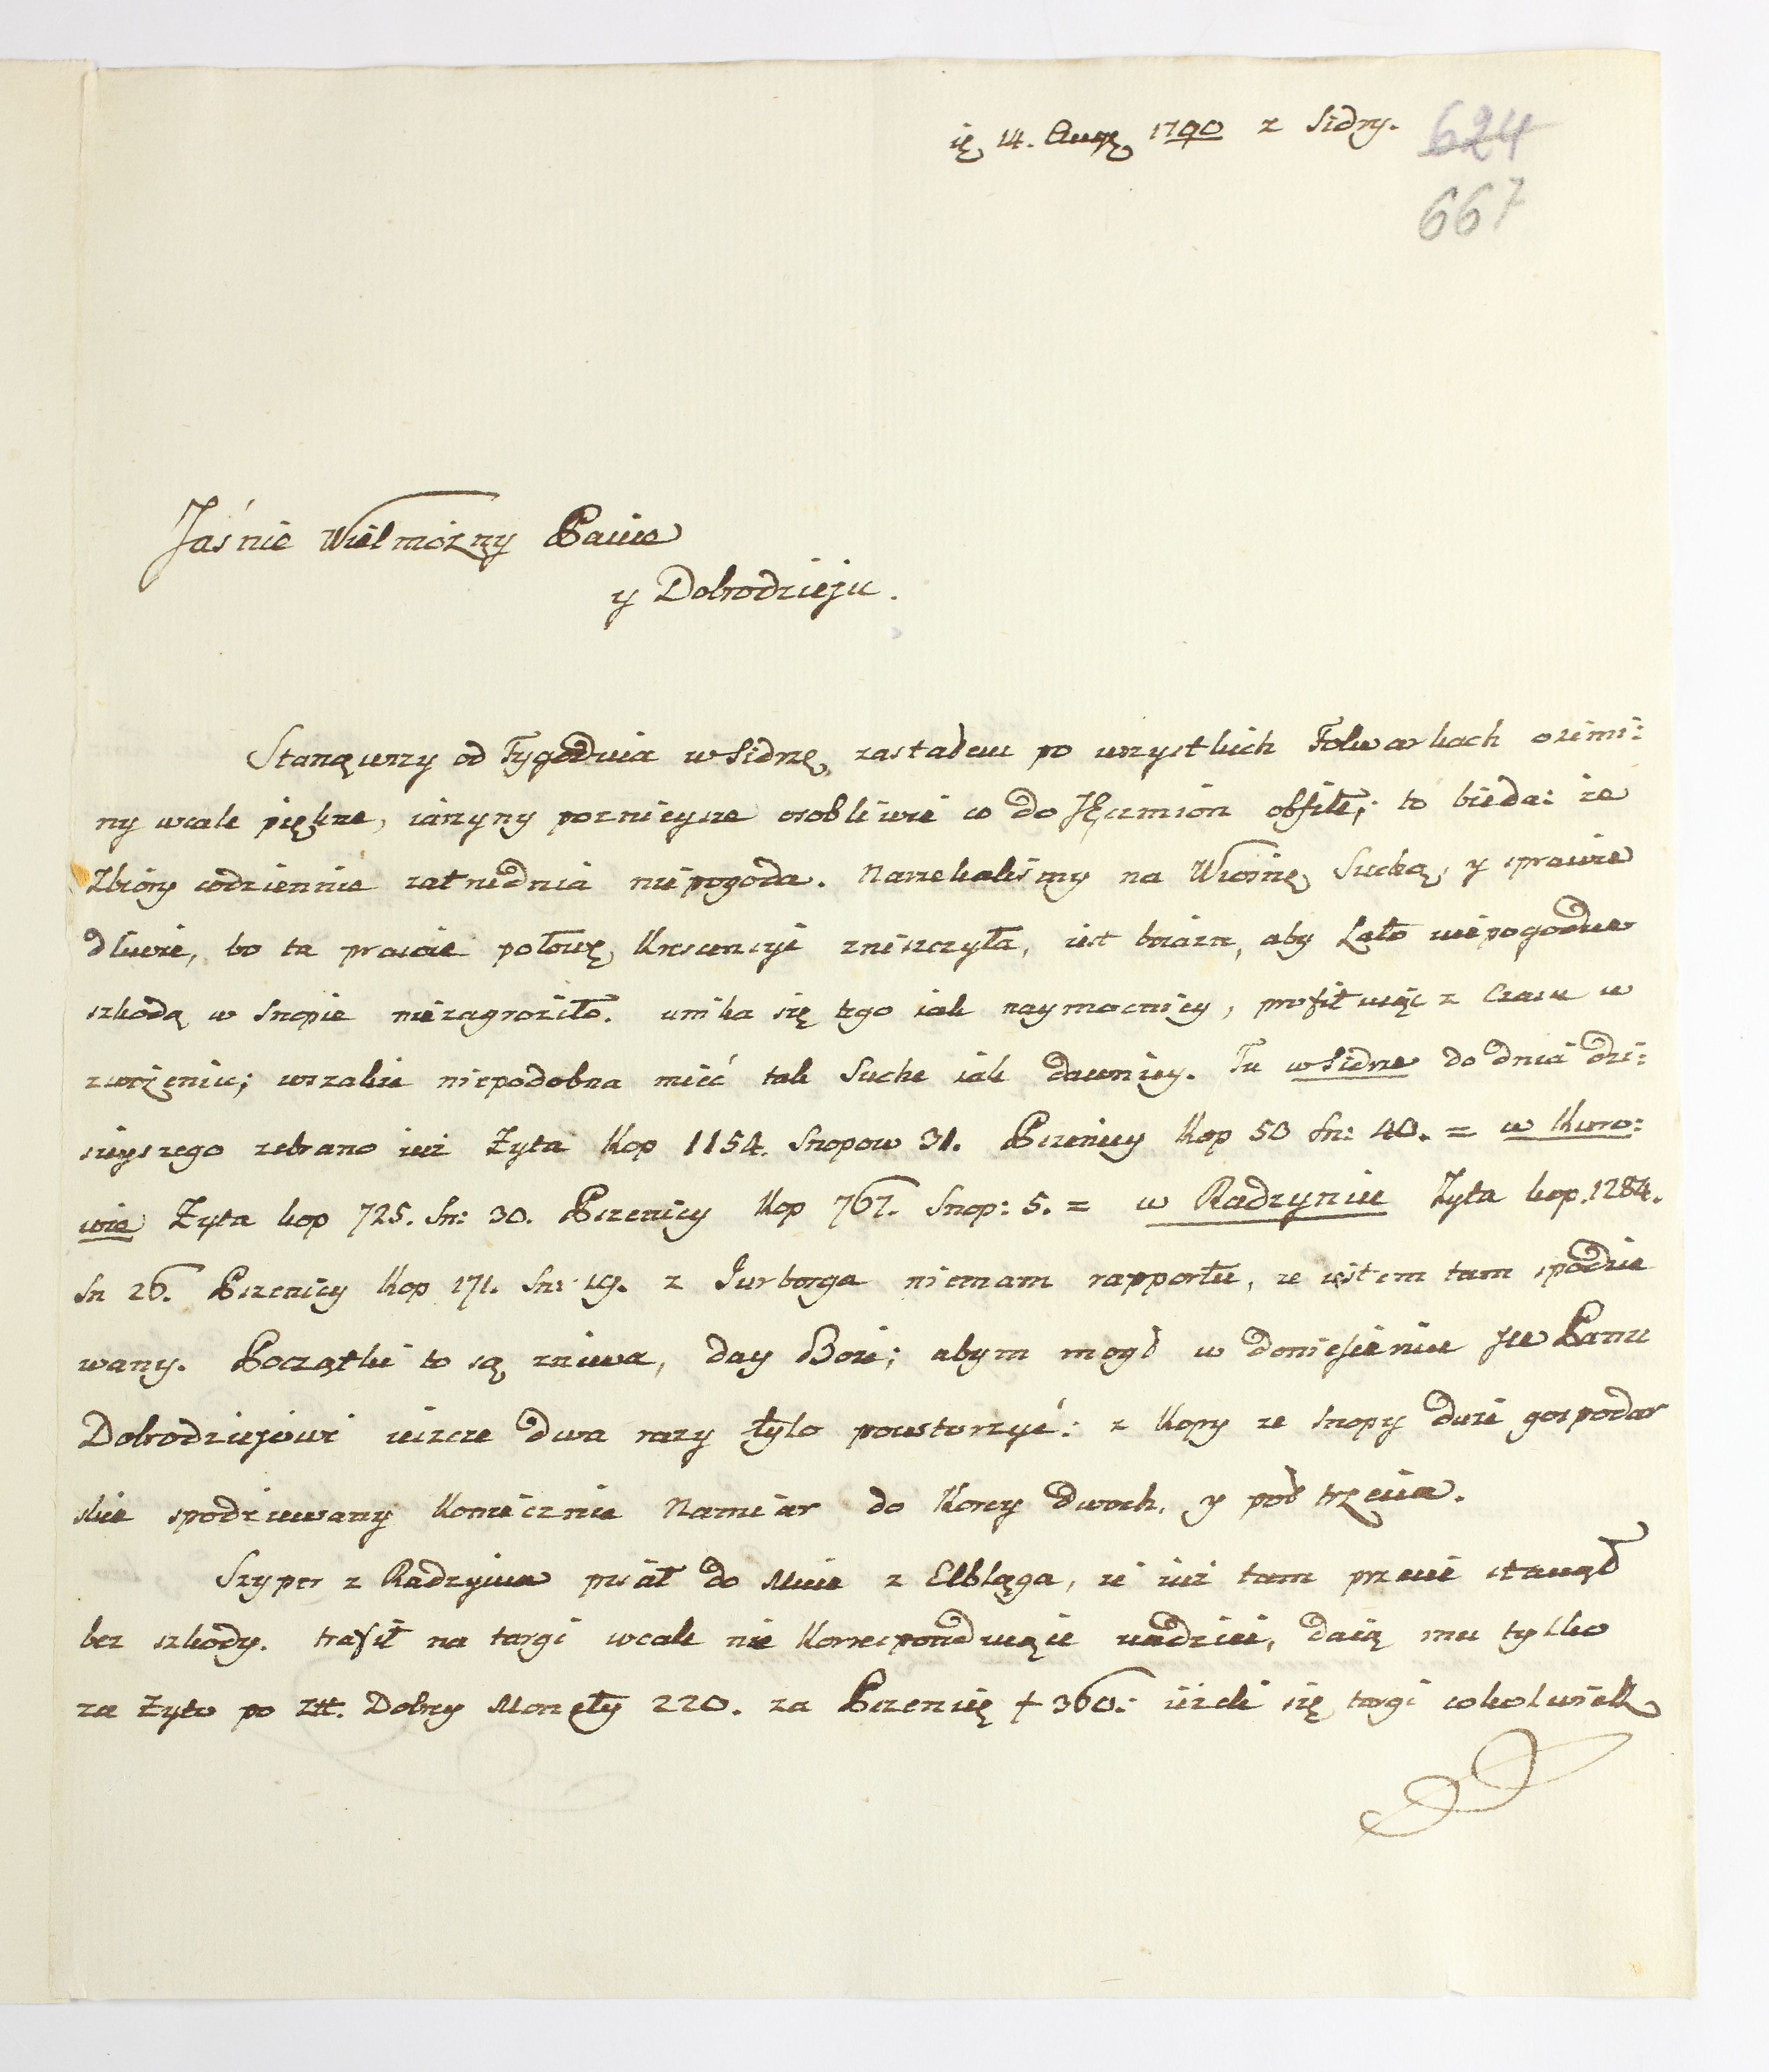 14. Aug 1790 z Sidry. 624
667
Jaśnie Wielmożny Panie
y Dobrodzieju.
Stanąwszy od Tygodnia w Sidrze, zastałem po wszystkich Folwarkach ozimi:
ny wcale piękne, iarzyny poznieysze osobliwie co do Jęczmion obfite; to bieda: że
Zbiory codziennie zatrudnia niepogoda. Narzekalismy na Wiosnę Suchą, y sprawie
dliwie, bo ta prawie połowę Krescencyi zniszczyła, iest boiazn, aby Lato niepogodne
szkodą w Snopie niezagroziło. unika się tego iak naymocniey, profituiąc z Czasu w
zwożeniu; wszakże niepodobna mieć tak Suche iak dawniey. Tu w Sidrze do dnia dzi:
sieyszego zebrano iuż Żyta Kop 1154. Snopow 31. Pszenicy Kop 50 Sn: 40. = w Kuro:
wie Żyta kop 725. Sn: 30. Pszenicy Kop 767. Snop: 5. = w Radzyniu Żyta kop. 1284.
Sn 26. Pszenicy Kop 171. Sn: 19. z Jurborga niemam rapportu, że iestem tam spodzie
wany. Początki to są zniwa, day Boże; abym mogł w doniesieniu JW Panu
Dobrodziejowi ieszcze dwa razy tylo powtorzyć: z Kopy że snopy duże gospodar
skie spodziewany Koniecznie Namiar do Korcy dwoch, y poł trzecia.
Szyper z Radzynia pisał do Mnie z Elbląga, że iuż tam przecie stanął
bez szkody. trafił na targi wcale nie Korrespondujące nadziei, daią mu tylko
za Żyto po Złł. Dobrey Monety 220. za Pszenicę f 360: iеżeli się targi cokolwiek